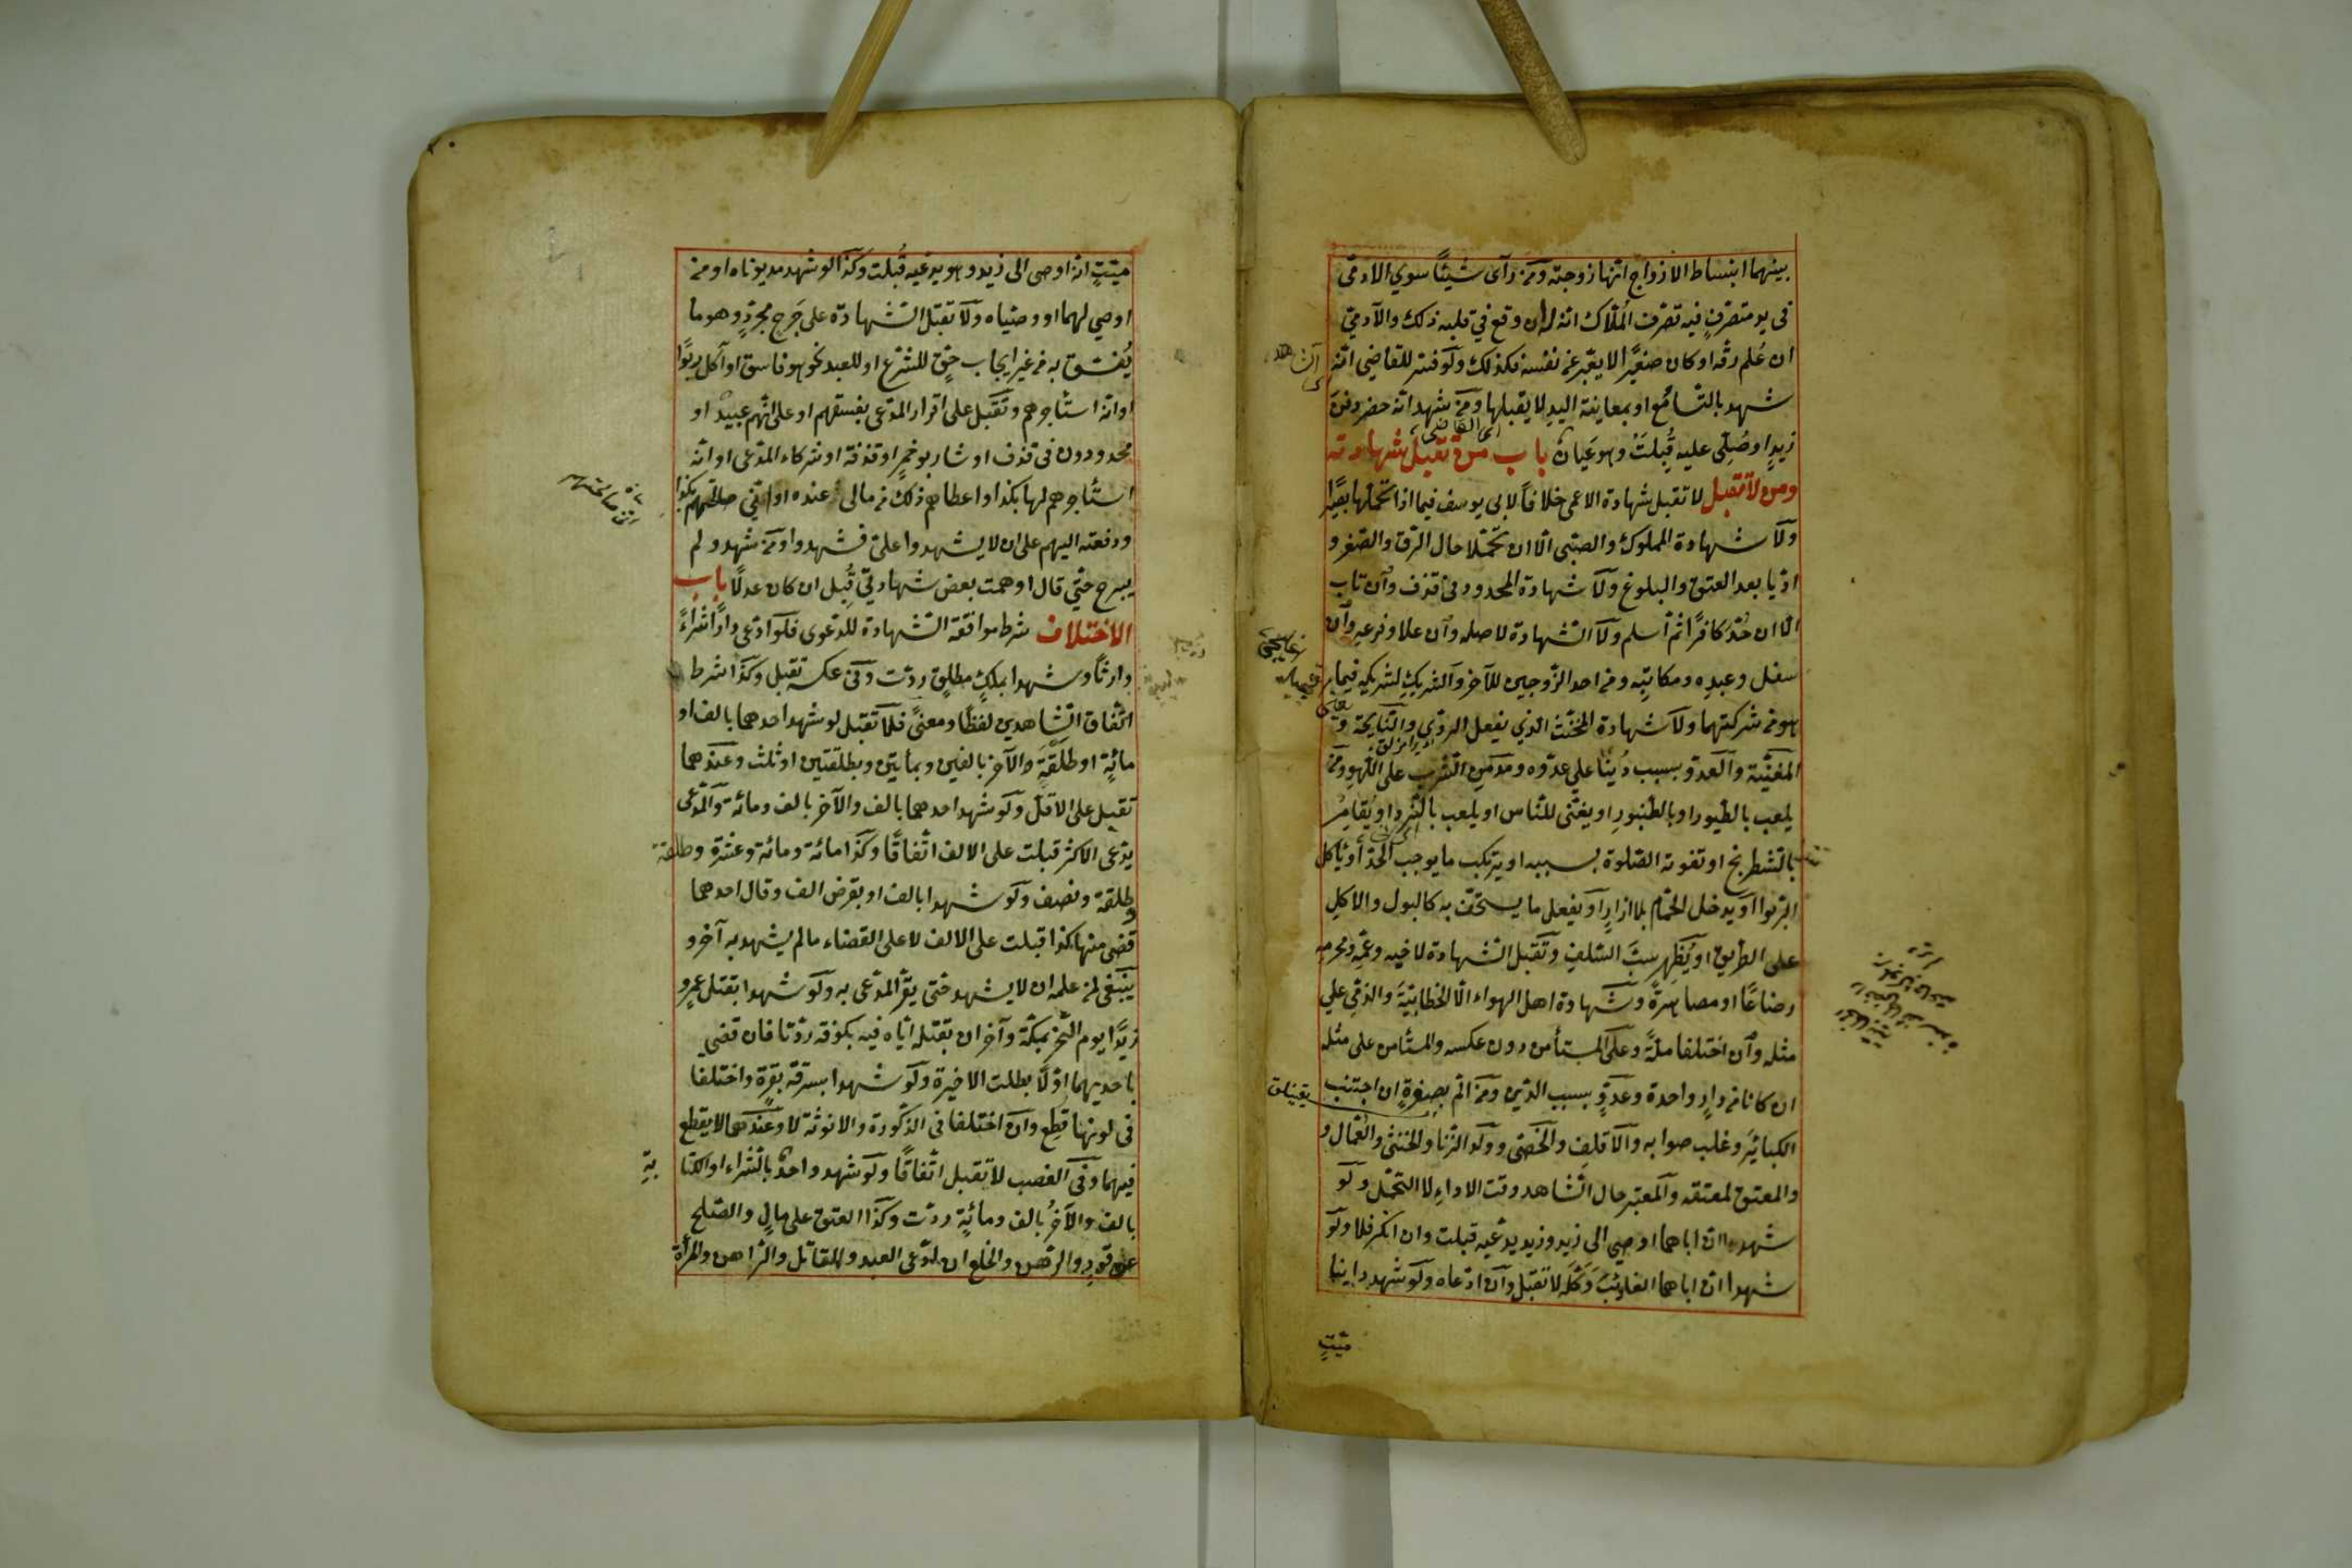 بينهما انبساط الازواج انها زوجته ومن رآى شيئًا سوي الادمي
في يد متصرفٍ فيه تصرف المُلّاك انه له ان وقع في قلبه ذلك والآدمي
ان عُلم رقّه او كان صغيرًا لا يعبّر عن نفسه فكذلك ولو فسّر للقاضي انّه
شهد بالتّسامُع او بمعاينة اليدِ لا يقبلها ومن شهد انّه حضر دفن
زيدٍ او صُلّي عليه قُبِلَتْ وهو عَيان باب من تقبل شهادته
ومن لا تقبل لا تقبل شهادة الاعمى خلافًا لابى يوسف فيما اذا تحمّلها بصيرًا
ولا شهادة المملوك والصّبى الّا ان تحمّلا حال الرّق والصّغر و
ادّيا بعد العتق والبلوغ ولا شهادة المحدود في قذف وان تاب
الّا ان حُدّ كافرًا ثم أسلم ولا الشّهادة لاصله وان علا وفرعه وان
سفل وعبدِه ومكاتبِه ومن احد الزّوجين للآخر والشريكِ لشريكه فيما
هو من شركتهما ولا شهادة المخنّث الذي يفعل الردّي والنّايحة و
المغنّية والعدوّ بسبب دُنيًا على عدّوه ومدمن الشّرب على اللّهو ومن
يلعب بالطّيور او بالطّنبورِ او يغنّى للنّاس او يلعب بالنّرد او يُقامِرُ
بالشّطرنج او تفوته الصّلوة بسببه او يرتكب ما يوجب الحدّ أو يأكل
الرّبوا او يدخل الحمّام بلا ازارٍ او يفعل ما يستخفّ به كالبول والاكلِ
على الطّريق او يُظهِر سبَّ السّلفِ وتقبل الشّهادة لاخيه وعمّه ومحرمه
رضاعًا او مصاهرةً وشهادة اهل الهواء الّا الخطابيّةَ والذمّي على
مثله وان اختلفا ملّةً وعلى المستأمن دون عكسه والمستأمن على مثله
ان كانا من دارٍ واحدة وعدوٍّ بسبب الدّين ومن المّ بصغيرةٍ ان اجتنب
الكبائرَ وغلب صوابه والاقلفِ والخصّى وولد الزّنا والخنثى والعمّال و
والمعتق لمعتقه والمعتبر حال الشّاهد وقت الاداءِ لا التحمّل ولو
شهدا انّ اباهما اوصي الى زيد وزيد يدّعيه قبلت وان انكر فلا ولو
شهدا انّ اباهما الغايبَ وَكّلَه لا تقبل وان ادّعاه ولو شهد داينا
ميّتٍ
ميّتٍ انه اوصى الى زيد وهو يدّعيه قُبلت وكذا لو شهد مديوناه او من
اوصي لهما او وصيّاه ولا تقبل الشّهادة على جَرحٍ مجرّدٍ وهو ما
يُفسّق به من غير ايجاب حقٍّ للشّرع او للعبد نحو هو فاسق او آكل ربوًا
او انه استأجرهم وتقبل على اقرار المدّعى بفسقهم او على انّهم عبيد او
محدودون فى قذف او شاربو خمرٍ او قذفة او شركاء المدّعى او انّه
استأجرهم لها بكذا واعطاهم ذلك من مالى عنده او انّي صالحتهم بكذا
ودفعته اليهم على ان لا يشهدوا علىّ فشهدوا ومن شهد ولم
يبرح حتّي قال اوهمت بعض شهادتي قُبِل ان كان عدلًا باب
الاختلاف شرط موافقة الشّهادة للدّعوى فلو ادّعى دارًا شراءً
وارثًا وشهدا بملكٍ مطلقٍ ردّت وفى عكسه تقبل وكذا شرط
اتّفاق الشّاهدين لفظًا ومعنىً فلا تقبل لو شهد احدهما بالف او
مائةٍ او طلقةٍ والآخر بالفين وبمأتين وبطلقتين او ثلث وعندهما
تقبل على الاقلّ ولو شهد احدهما بالف والآخر بالف ومائة والمدّعى
يدّعى الاكثر قبلت على الالف اتّفاقًا وكذا مائة ومائة وعشرة وطلقة
وطلقة ونصف ولو شهدا بالف او بقرض الف وقال احدهما
قضى منها كذا قبلت على الالف لا على القضاء ما لم يشهد به آخر و
ينبغى لمن علمه ان لا يشهد حتى يقرّ المدّعى به ولو شهدا بقتل عمرٍو
زيدًا يوم النّحر بمكّة وآخران بقتله ايّاه فيه بكوفة ردّتا فان قضي
باحديهما اوّلًا بطلت الاخيرة ولو شهدا بسرقة بقرة واختلفا
فى لونها قطع وان اختلفا فى الذّكورة والانوثة لا وعندهما لا يقطع
فيهما وفى الغصب لا تقبل اتّفاقًا ولو شهد واحدٌ بالشّراء او الكتا
بةِ
بالف والآخرُ بالف ومائةٍ ردّت وكذا العتق على مالٍ والصّلح
عن قودٍ والرّهن والخلع ان ادّعى العبد والقاتل والرّاهن والمرأة